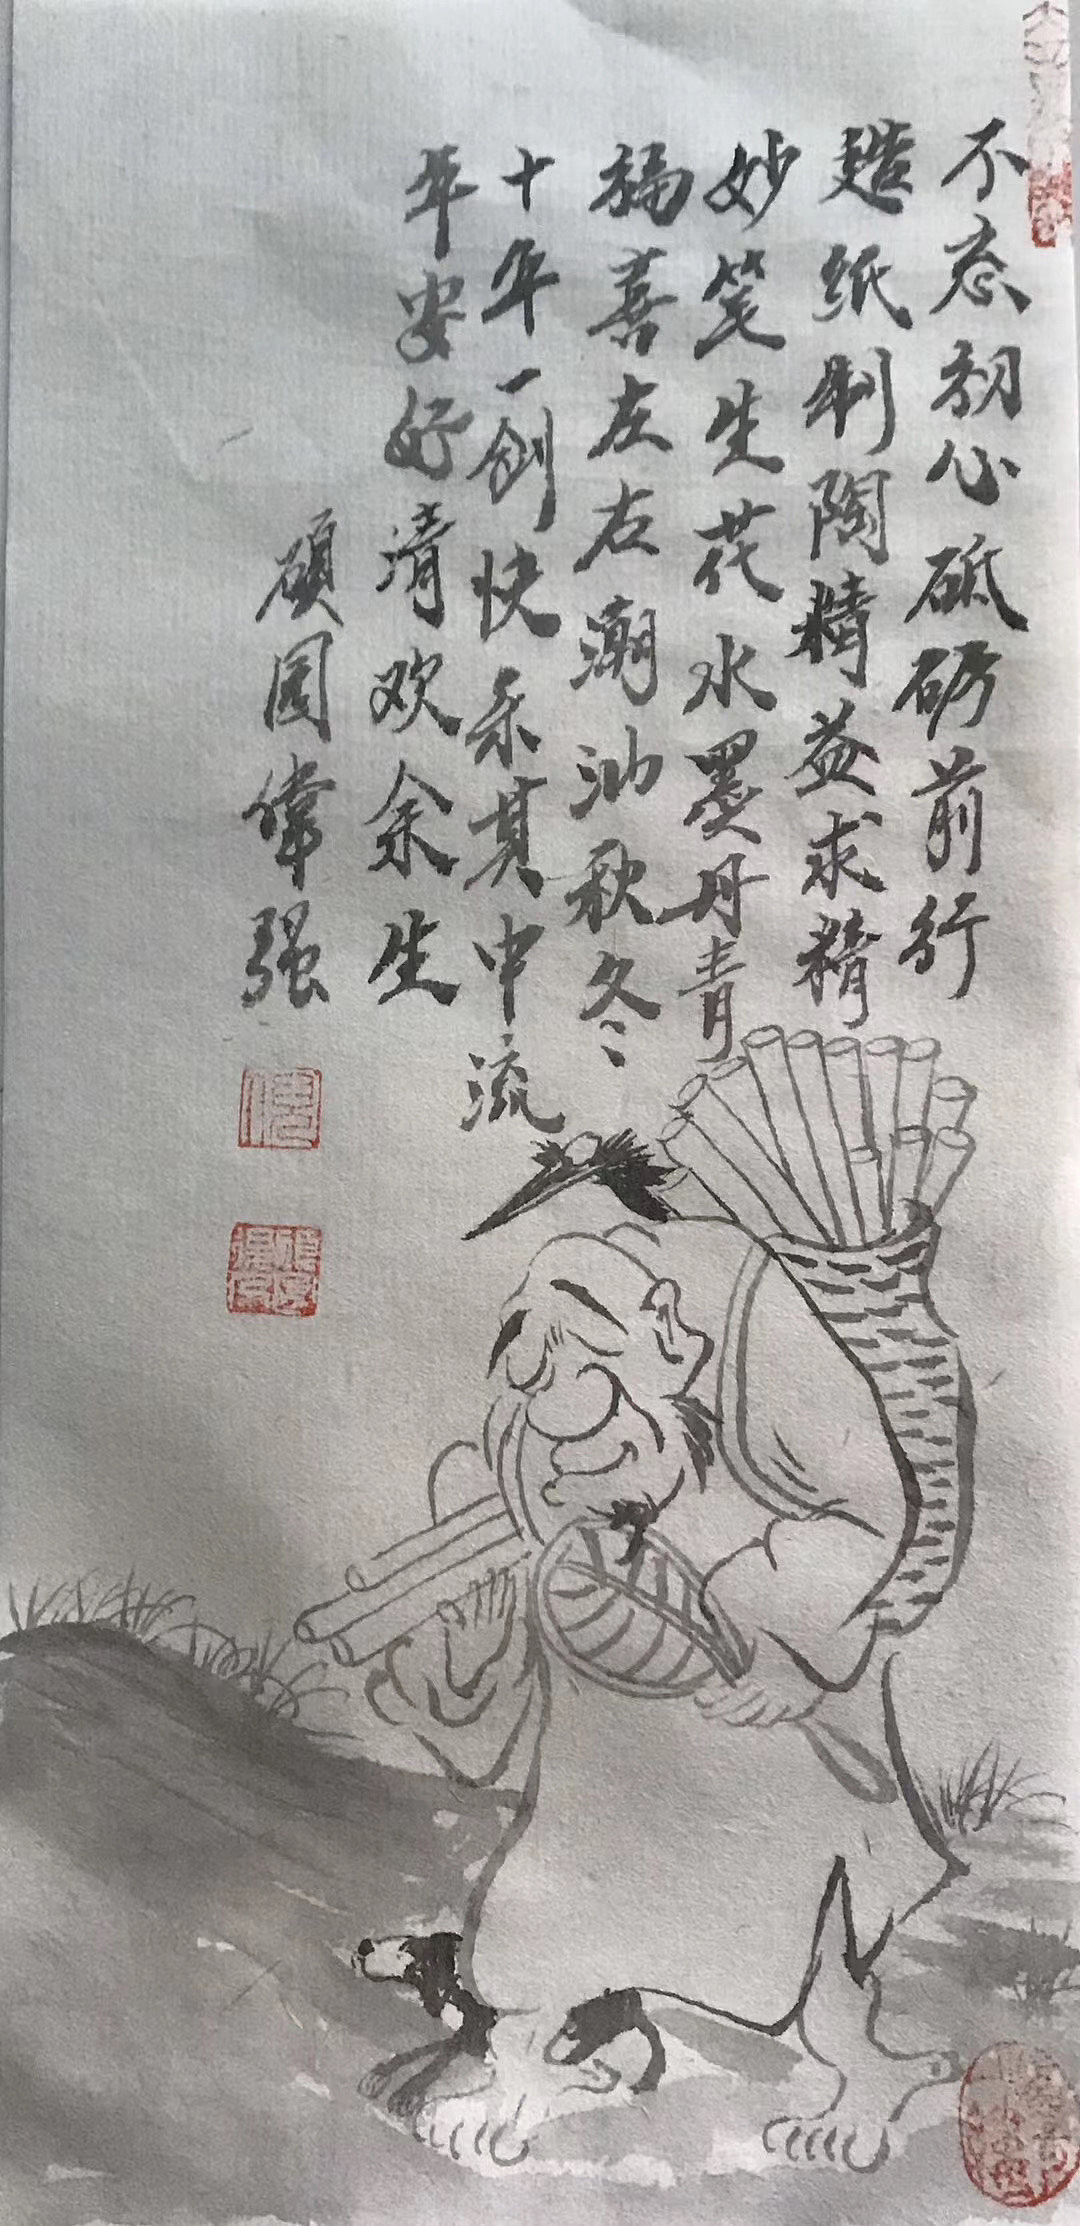 不忘初心砥砺前行
造纸制陶精益求精
妙笔生花水墨丹青
福喜左右潮汕秋冬
十年一剑快乐其中流
年安好清欢余生
顾园伟强